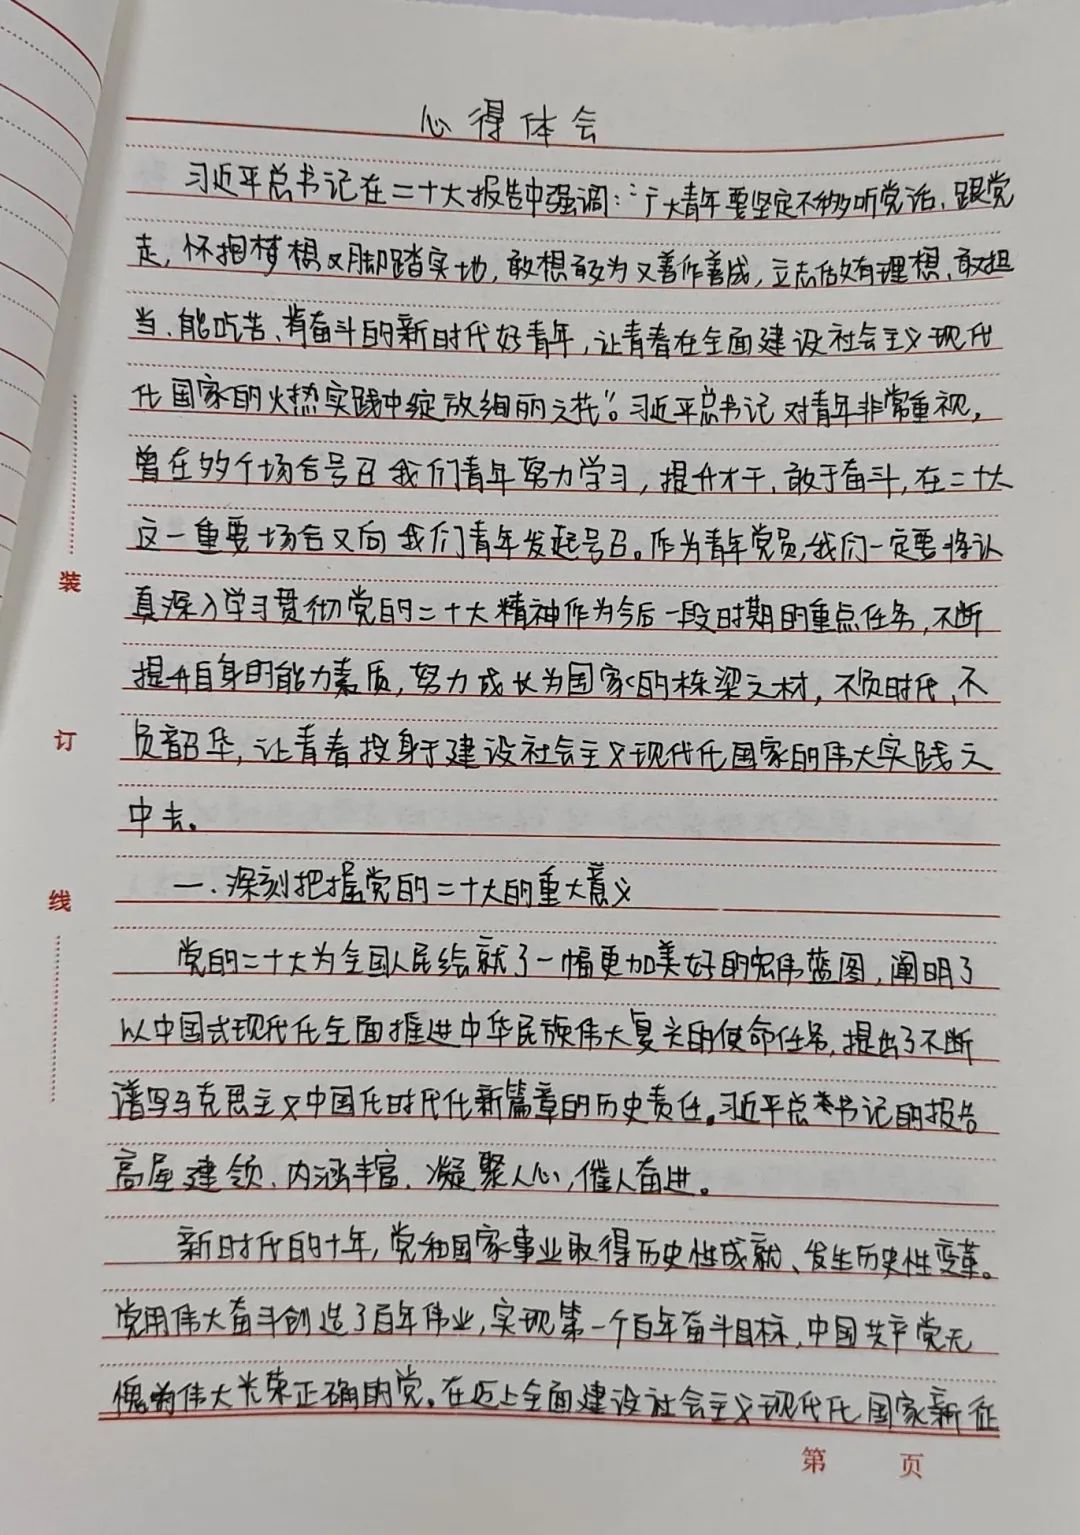 心得体会
习近平总书记在二十大报告中强调：“广大青年要坚定不移听党话、跟党
走，怀抱梦想又脚踏实地，敢想敢为又善作善成，立志做有理想、敢担
当、能吃苦、肯奋斗的新时代好青年，让青春在全面建设社会主义现代
化国家的火热实践中绽放绚丽之花”。习近平总书记对青年非常重视，
曾在多个场合号召我们青年努力学习，提升才干、敢于奋斗，在二十大
这一重要场合又向我们青年发起号召。作为青年党员，我们一定要将认
真深入学习贯彻党的二十大精神作为今后一段时期的重点任务，不断
提升自身的能力素质，努力成长为国家的栋梁之材，不负时代、不
负韶华，让青春投身于建设社会主义现代化国家的伟大实践之
中去。
一.深刻把握党的二十大的重大意义
党的二十大为全国人民绘就了一幅更加美好的宏伟蓝图，阐明了
以中国式现代化全面推进中华民族伟大复兴的使命任务，提出了不断
谱写马克思主义中国化时代化新篇章的历史责任。习近平总书记的报告
高屋建领、内涵丰富、凝聚人心，催人奋进。
新时代的十年，党和国家事业取得历史性成就、发生历史性变革。
党用伟大奋斗创造了百年伟业，实现第一个百年奋斗目标，中国共产党无
愧为伟大光荣正确的党。在迈上全面建设社会主义现代化国家新征
装
订
线
第 页